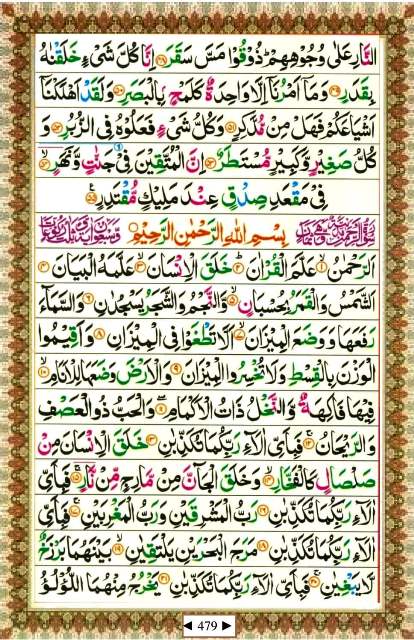 النَّارِ عَلٰى وُجُوْهِهِمْ ؕ ذُوْقُوْا مَسَّ سَقَرَ ﴿۴۸﴾ اِنَّا كُلَّ شَیْءٍ خَلَقْنٰهُ
بِقَدَرٍ ﴿۴۹﴾ وَمَاۤ اَمْرُنَاۤ اِلَّا وَاحِدَةٌ كَلَمْحٍۭ بِالْبَصَرِ ﴿۵۰﴾ وَلَقَدْ اَهْلَكْنَاۤ
اَشْیَاعَكُمْ فَهَلْ مِنْ مُّدَّكِرٍ ﴿۵۱﴾ وَكُلُّ شَیْءٍ فَعَلُوْهُ فِی الزُّبُرِ ﴿۵۲﴾ وَ
كُلُّ صَغِیْرٍ وَّكَبِیْرٍ مُّسْتَطَرٌ ﴿۵۳﴾ اِنَّ الْمُتَّقِیْنَ فِیْ جَنّٰتٍ وَّنَهَرٍ ﴿۵۴﴾
فِیْ مَقْعَدِ صِدْقٍ عِنْدَ مَلِیْكٍ مُّقْتَدِرٍ ﴿۵۵﴾
بِسْمِ اللّٰهِ الرَّحْمٰنِ الرَّحِیْمِ
اَلرَّحْمٰنُ ﴿۱﴾ عَلَّمَ الْقُرْاٰنَ ﴿۲﴾ خَلَقَ الْاِنْسَانَ ﴿۳﴾ عَلَّمَهُ الْبَیَانَ ﴿۴﴾
اَلشَّمْسُ وَالْقَمَرُ بِحُسْبَانٍ ﴿۵﴾ وَّالنَّجْمُ وَالشَّجَرُ یَسْجُدٰنِ ﴿۶﴾ وَالسَّمَآءَ
رَفَعَهَا وَوَضَعَ الْمِیْزَانَ ﴿۷﴾ اَلَّا تَطْغَوْا فِی الْمِیْزَانِ ﴿۸﴾ وَاَقِیْمُوا
الْوَزْنَ بِالْقِسْطِ وَلَا تُخْسِرُوا الْمِیْزَانَ ﴿۹﴾ وَالْاَرْضَ وَضَعَهَا لِلْاَنَامِ ﴿۱۰﴾
فِیْهَا فَاكِهَةٌ وَّالنَّخْلُ ذَاتُ الْاَكْمَامِ ﴿۱۱﴾ وَالْحَبُّ ذُو الْعَصْفِ
وَالرَّیْحَانُ ﴿۱۲﴾ فَبِاَیِّ اٰلَآءِ رَبِّكُمَا تُكَذِّبٰنِ ﴿۱۳﴾ خَلَقَ الْاِنْسَانَ مِنْ
صَلْصَالٍ كَالْفَخَّارِ ﴿۱۴﴾ وَخَلَقَ الْجَآنَّ مِنْ مَّارِجٍ مِّنْ نَّارٍ ﴿۱۵﴾ فَبِاَیِّ
اٰلَآءِ رَبِّكُمَا تُكَذِّبٰنِ ﴿۱۶﴾ رَبُّ الْمَشْرِقَیْنِ وَرَبُّ الْمَغْرِبَیْنِ ﴿۱۷﴾ فَبِاَیِّ
اٰلَآءِ رَبِّكُمَا تُكَذِّبٰنِ ﴿۱۸﴾ مَرَجَ الْبَحْرَیْنِ یَلْتَقِیٰنِ ﴿۱۹﴾ بَیْنَهُمَا بَرْزَخٌ
لَّا یَبْغِیٰنِ ﴿۲۰﴾ فَبِاَیِّ اٰلَآءِ رَبِّكُمَا تُكَذِّبٰنِ ﴿۲۱﴾ یَخْرُجُ مِنْهُمَا اللُّؤْلُؤُ
◄ 479 ►